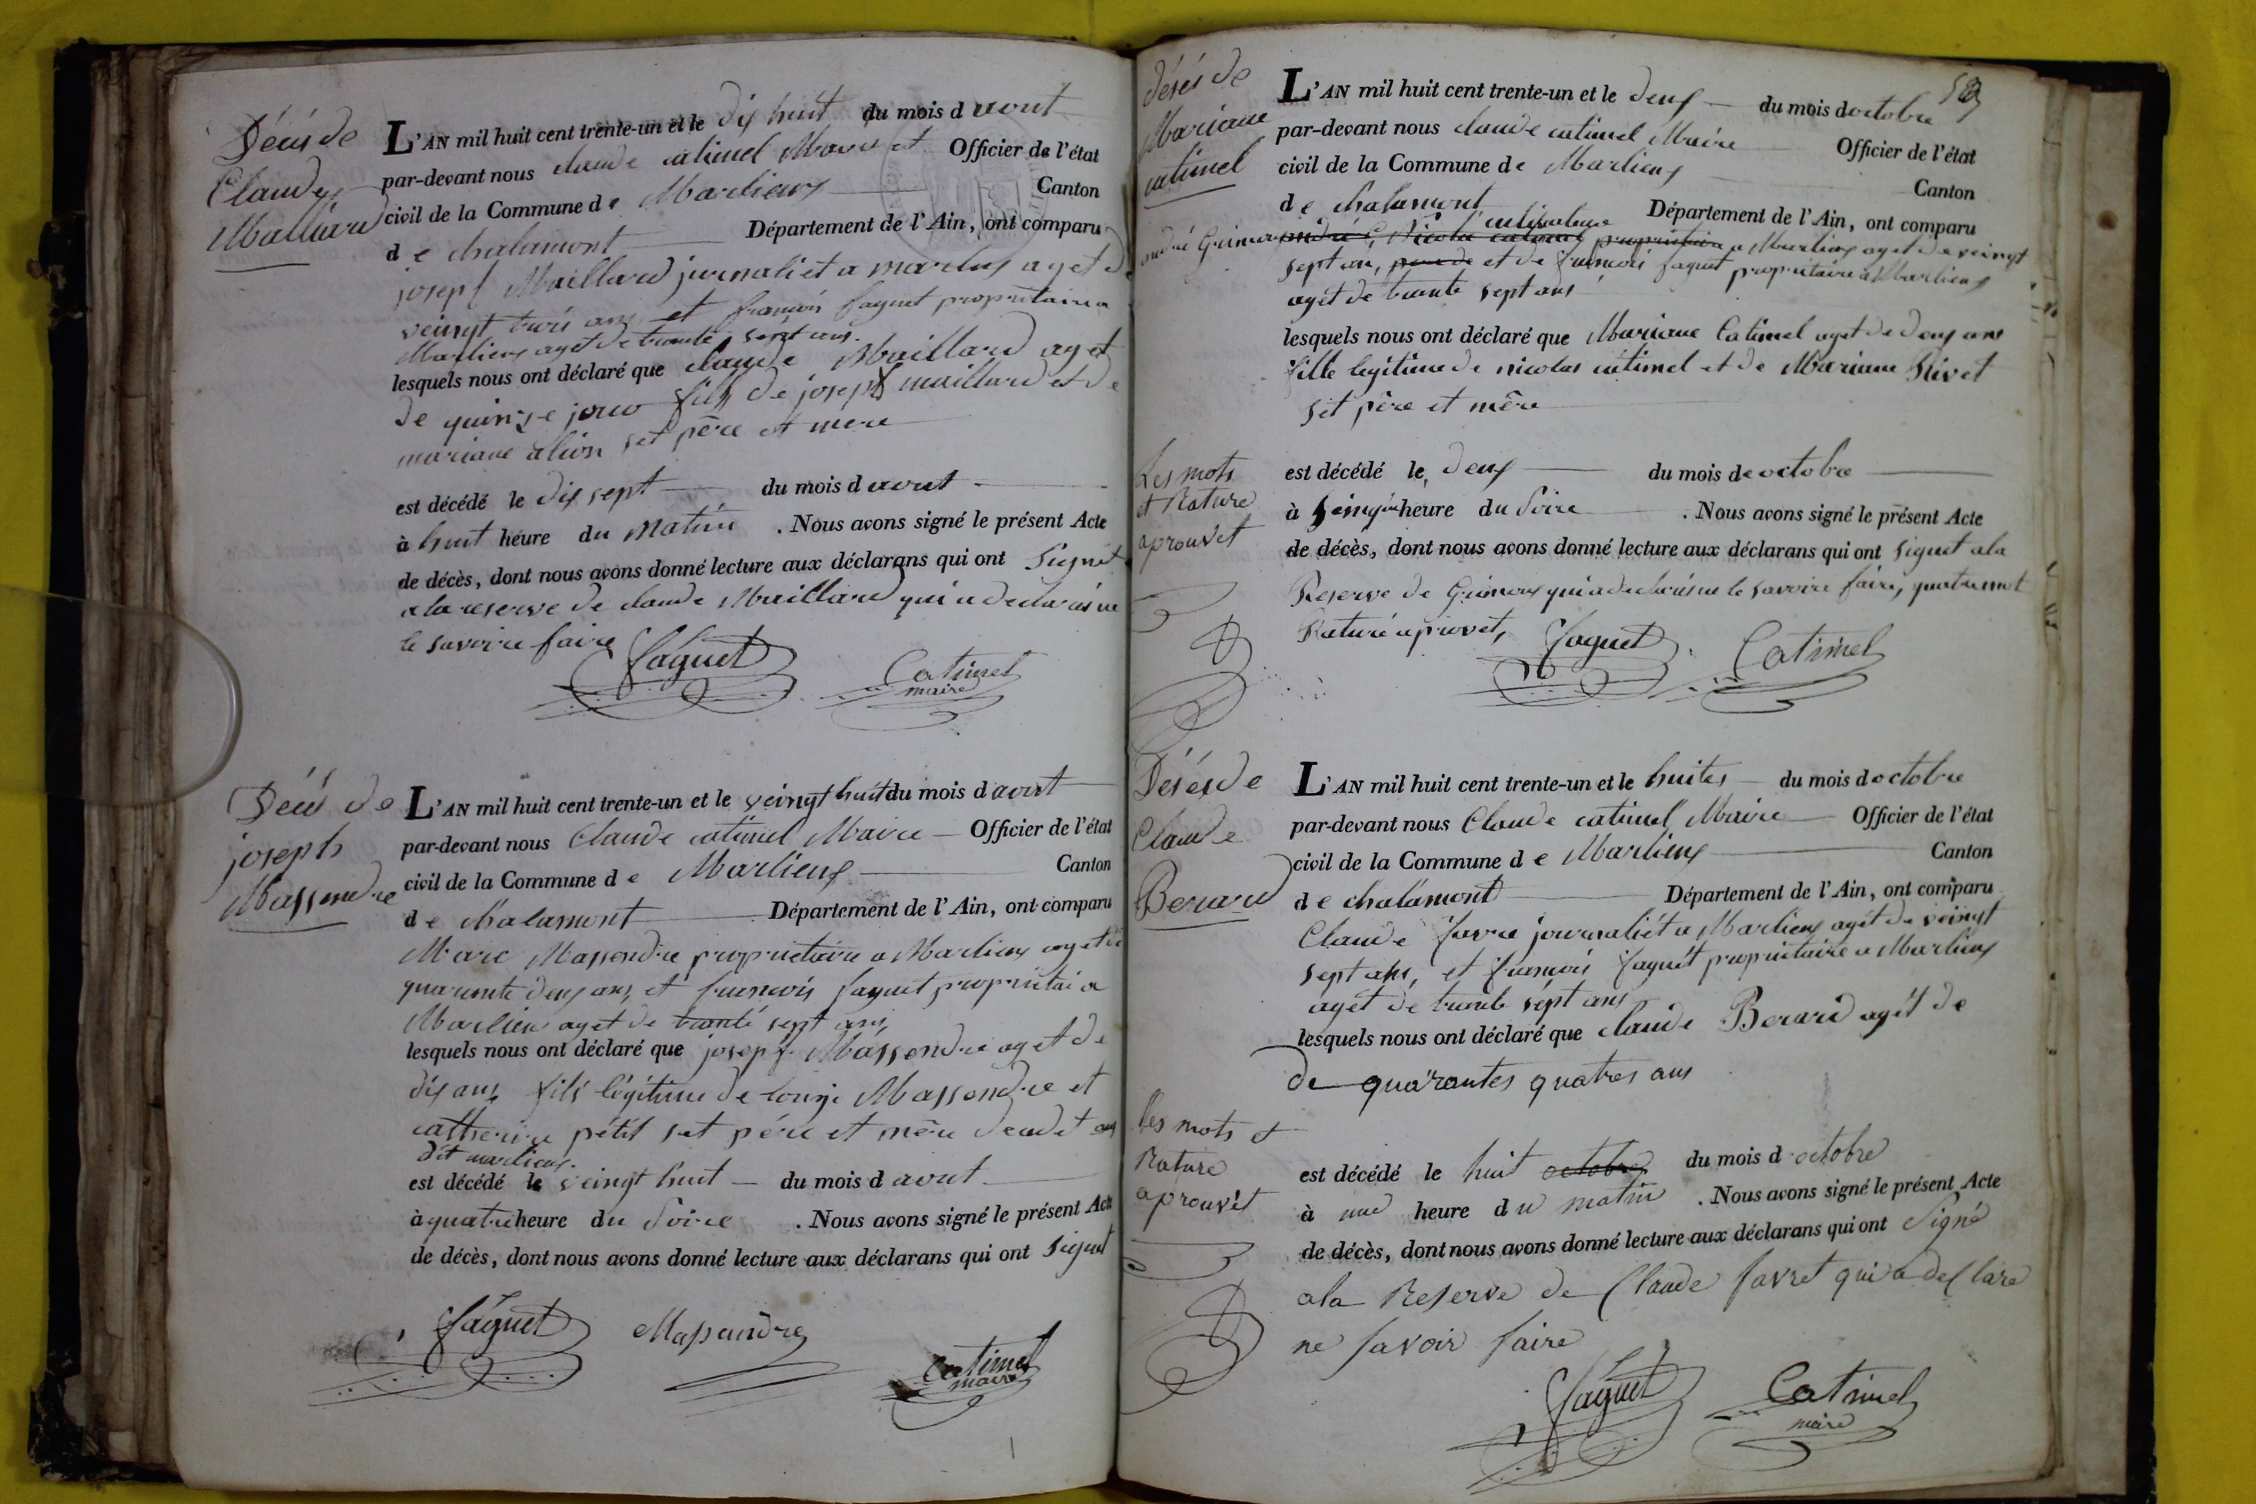 Décès de
Claude
Malliard
L'AN mil huit cent trente-un et le dix huit du mois d aout
par-devant nous claude catimel Officier de l'état
civil de la Commune de Marlieux Canton
d e chalamont Département de l'Ain, ont comparu
joseph Maillard jurnaliet a marlieux aget de
veingt trois ans et françois faguet propriétaire a
Marlieux aget de trante sept ans.
lesquels nous ont déclaré que claude Maillard aget
de quinze jour fils de joseph maillard et de
mariane set père et mere
est décédé le dix sept du mois d aout
à huit héure du matin . Nous avons signé le présent Acte
de décès, dont nous avons donné lecture aux déclarans qui ont signet
a la reserve de claude Maillard qui a declaré ne
le savoire faire
faguet Catimel
maire
Décès de
joseph
Massendre
L'AN mil huit cent trente-un et le veingt huit du mois d aout
par-devant nous Claude catimel Maire Officier de l'état
civil de la Commune d e Marlieux Canton
d e chalamont Département de l'Ain, ont comparu
Marc Massendre proprietaire a Marlieux aget de
quarante deux ans, et françois faguet propriétai a
Marlieu aget de trante sept ans
lesquels nous ont déclaré que joseph Massendre aget de
dix ans fils légitime de Massendre et
catherine pétit set père et mère
dit marlieux.
est décédé le veingt huit du mois d aout
à quatre heure du soire . Nous avons signé le présent Acte
de décès, dont nous avons donné lecture aux déclarans qui ont signet
faguet Massendre
Catimel
maire
Désés de
Mariane
catimel
L'AN mil huit cent trente-un et le deux du mois d octobre
par-devant nous claude catimel Maire Officier de l'état
civil de la Commune de Marlieux Canton
de chalamont Département de l'Ain, ont comparu
cultivateur
andré nicolas catimel propriétaire a Marlieux aget de veingt
sept ans, et de françois faguet propriétaire a Marlieux
aget de trante sept ans
lesquels nous ont déclaré que Mariane Catimel aget de deux ans
fille legitime de nicolas catimel et de Mariane Rivet
set père et mère
Les mots
et Rature
aprouvet
est décédé le deux du mois de octobre
à heure du soire . Nous avons signé le présent Acte
de décès, dont nous avons donné lecture aux déclarans qui ont signet a la
Reserve de qui a declaré ne le savoire faire, quatre mot
Raturé aprouvet,
faguet Catimel
Désés de
Claude
Berard
L'AN mil huit cent trente-un et le huites du mois d octobre
par-devant nous Claude catimel Maire Officier de l'état
civil de la Commune d e Marlieux Canton
d e chalamont Département de l'Ain, ont comparu
Claude favre journaliét a Marlieux agét de veingt
sept ans, et françois faguét propriétaire a Marlieux
agét de trante sépt ans
lesquels nous ont déclaré que claude Berard agét de
de quarantes quatres ans
les mots et
Rature
aprouvét
est décédé le huit octobre du mois d octobre
à une heure du matin . Nous avons signé le présent Acte
de décès, dont nous avons donné lecture aux déclarans qui ont signé
a la Reserve de Claude favret qui a declaré
ne savoir faire
faguet Catimel
maire